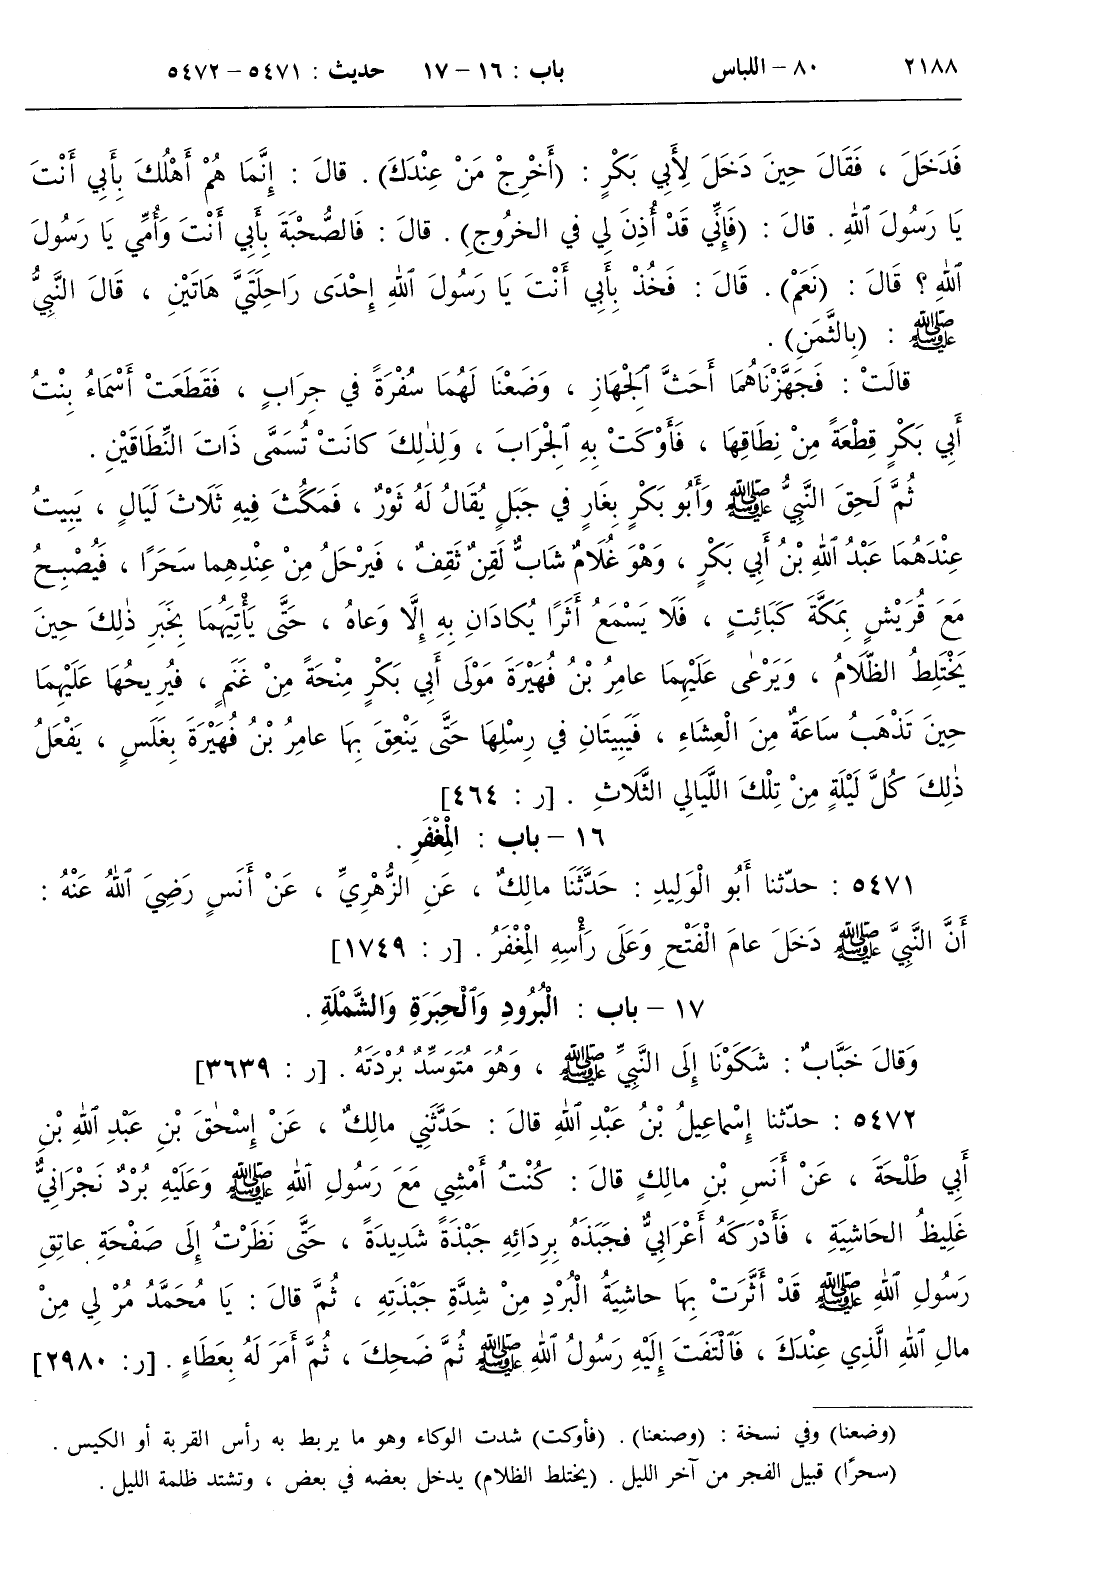 ٢١٨٨ ٨٠ – اللباس باب : ١٦ – ١٧ حديث : ٥٤٧١ – ٥٤٧٢
فَدَخَلَ ، فَقَالَ حِينَ دَخَلَ لِأَبِي بَكْرٍ : (أَخْرِجْ مَنْ عِنْدَكَ) . قالَ : إِنَّمَا هُمْ أَهْلُكَ بِأَبِي أَنْتَ
يَا رَسُولَ ٱللهِ . قالَ : (فَإِنِّي قَدْ أُذِنَ لِي في الخرُوجِ) . قالَ : فَالصُّحْبَةَ بِأَبِي أَنْتَ وَأُمِّي يَا رَسُولَ
ٱللهِ ؟ قَالَ : (نَعَمْ) . قَالَ : فَخُذْ بِأَبِي أَنْتَ يَا رَسُولَ ٱللهِ إِحْدَى رَاحِلَتَيَّ هَاتَيْنِ ، قَالَ النَّبِيُّ
ﷺ : (بِالثَّمَنِ) .
قالَتْ : فَجَهَّزْنَاهُمَا أَحَثَّ ٱلْجَهَازِ ، وَضَعْنَا لَهُمَا سُفْرَةً في جِرَابٍ ، فَقَطَعَتْ أَسْمَاءُ بِنْتُ
أَبِي بَكْرٍ قِطْعَةً مِنْ نِطَاقِهَا ، فَأَوْكَتْ بِهِ ٱلْجْرَابَ ، وَلِذٰلِكَ كانَتْ تُسَمَّى ذَاتَ النِّطَاقَيْنِ .
ثُمَّ لَحِقَ النَّبِيُّ ﷺ وَأَبُو بَكْرٍ بِغَارٍ في جَبَلٍ يُقَالُ لَهُ ثَوْرٌ ، فَمَكُثَ فِيهِ ثَلَاثَ لَيَالٍ ، يَبِيتُ
عِنْدَهُمَا عَبْدُ ٱللهِ بْنُ أَبِي بَكْرٍ ، وَهْوَ غُلَامٌ شَابٌّ لَقِنٌ ثَقِفٌ ، فَيَرْحَلُ مِنْ عِنْدِهِما سَحَرًا ، فَيُصْبِحُ
مَعَ قُرَيْشٍ بِمَكَّةَ كَبَائِتٍ ، فَلَا يَسْمَعُ أَثَرًا يُكادَانِ بِهِ إِلَّا وَعاهُ ، حَتَّى يَأْتِيَهُمَا بِخَبَرِ ذٰلِكَ حِينَ
يَخْتَلِطُ الظَّلَامُ ، وَيَرْعٰى عَلَيْهِمَا عامِرُ بْنُ فُهَيْرَةَ مَوْلَى أَبِي بَكْرٍ مِنْحَةً مِنْ غَنَمٍ ، فَيُرِيحُهَا عَلَيْهِمَا
حِينَ تَذْهَبُ ساعَةٌ مِنَ الْعِشَاءِ ، فَيَبِيتَانِ في رِسْلِهَا حَتَّى يَنْعِقَ بِهَا عامِرُ بْنُ فُهَيْرَةَ بِغَلَسٍ ، يَفْعَلُ
ذٰلِكَ كُلَّ لَيْلَةٍ مِنْ تِلْكَ اللَّيَالِي الثَّلَاثِ . [ر : ٤٦٤]
١٦ – باب : الْمِغْفَرِ .
٥٤٧١ : حدّثنا أَبُو الْوَلِيدِ : حَدَّثَنَا مالِكٌ ، عَنِ الزُّهْرِيِّ ، عَنْ أَنَسٍ رَضِيَ ٱللهُ عَنْهُ :
أَنَّ النَّبِيَّ ﷺ دَخَلَ عامَ الْفَتْحِ وَعَلَى رَأْسِهِ الْمِغْفَرُ . [ر : ١٧٤٩]
١٧ – باب : الْبُرُودِ وَٱلْحِبَرَةِ وَالشَّمْلَةِ .
وَقالَ خَبَّابٌ : شَكَوْنَا إِلَى النَّبِيِّ ﷺ ، وَهُوَ مُتَوَسِّدٌ بُرْدَتَهُ . [ر : ٣٦٣٩]
٥٤٧٢ : حدّثنا إِسْماعِيلُ بْنُ عَبْدِ ٱللهِ قالَ : حَدَّثَنِي مالِكٌ ، عَنْ إِسْحٰقَ بْنِ عَبْدِ ٱللهِ بْنِ
أَبِي طَلْحَةَ ، عَنْ أَنَسِ بْنِ مالِكٍ قالَ : كُنْتُ أَمْشِي مَعَ رَسُولِ ٱللهِ ﷺ وَعَلَيْهِ بُرْدٌ نَجْرَانِيٌّ
غَلِيظُ الحَاشِيَةِ ، فَأَدْرَكَهُ أَعْرَابِيٌّ فجَبَذَهُ بِرِدَائِهِ جَبْذَةً شَدِيدَةً ، حَتَّى نَظَرْتُ إِلَى صَفْحَةِ عاتِقِ
رَسُولِ ٱللهِ ﷺ قَدْ أَثَّرَتْ بِهَا حاشِيَةُ الْبُرْدِ مِنْ شِدَّةِ جَبْذَتِهِ ، ثُمَّ قالَ : يَا مُحَمَّدُ مُرْ لِي مِنْ
مالِ ٱللهِ الَّذِي عِنْدَكَ ، فَٱلْتَفَتَ إِلَيْهِ رَسُولُ ٱللهِ ﷺ ثُمَّ ضَحِكَ ، ثُمَّ أَمَرَ لَهُ بِعَطَاءٍ . [ر: ٢٩٨٠]
(وضعنا) وفي نسخة : (وصنعنا) . (فأوكت) شدت الوكاء وهو ما يربط به رأس القربة أو الكيس .
(سحرًا) قبيل الفجر من آخر الليل . (يختلط الظلام) يدخل بعضه في بعض ، وتشتد ظلمة الليل .